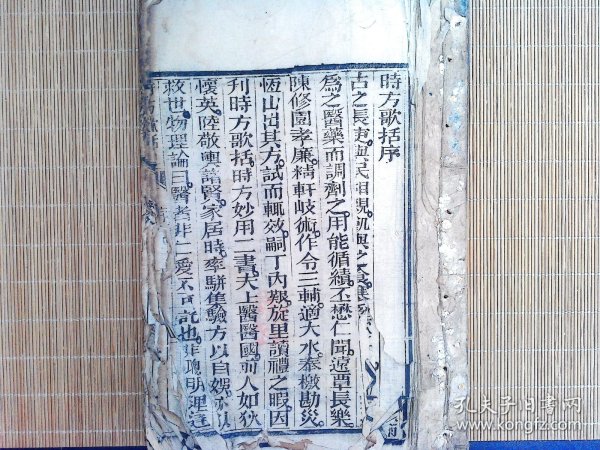 時方歌括序
古之長吏與民相親飢與之食寒
為之醫藥而調劑之用能循績丕懋仁聞遠覃長樂
陳修園孝廉精軒岐術作令三輔適大水奉檄勘災
恆山出其方試而輒效嗣丁內艱旋里讀禮之暇因
刊時方歌括時方妙用二書夫上醫醫國前人如狄
懷英陸敬輿諸賢家居時率騈集驗方以自娛
救世物理論曰醫者非仁愛不可託也非聰明理達
孔夫子旧书网
www.kongfz.com